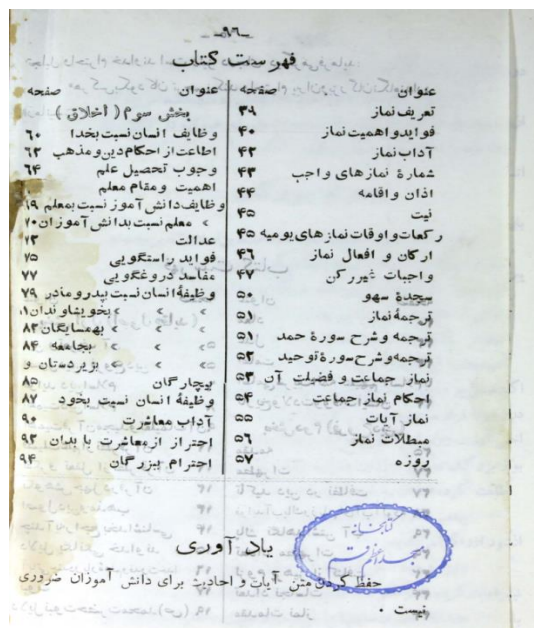 ـ۹۶ـ
فهرست کتاب
عنوان صفحه
تعریف نماز ۳۹
فوایدو اهمیت نماز ۴۰
آداب نماز ۴۲
شمارهٔ نمازهای واجب ۴۳
اذان واقامه ۴۴
نیت ۴۵
رکعات و اوقات نمازهای یومیه ۴۵
ارکان و افعال نماز ۴۶
واجبات غیررکن ۴۷
سجدهٔ سهو ۵۰
ترجمهٔ نماز ۵۱
ترجمه وشرح سورهٔ حمد ۵۱
ترجمه وشرح سورهٔ توحید ۵۲
نماز جماعت و فضیلت آن ۵۳
احکام نماز جماعت ۵۴
نماز آیات ۵۵
مبطلات نماز ۵۶
روزه ۵۷
عنوان صفحه
بخش سوم ( أخلاق )
وظایف انسان نسبت بخدا ۶۰
اطاعت از احکام دین و مذهب ۶۲
وجوب تحصیل علم ۶۴
اهمیت ومقام معلم
وظایف دانش آموز نسبت بمعلم ۶۹
» معلم نسبت بدانش آموزان ۷۰
عدالت ۷۳
فواید راستگویی ۷۵
مفاسد دروغگویی ۷۷
وظیفهٔ انسان نسبت بپدر و مادر ۷۹
» » » بخویشاوندان
» » » بهمسایگان ۸۳
» » » بجامعه ۸۴
» » » بزیردستان و
بیچارگان ۸۵
وظیفهٔ انسان نسبت بخود ۸۷
آداب معاشرت ۹۰
احتراز ازمعاشرت با بدان ۹۳
احترام بزرگان ۹۴
یادآوری
حفظ کردن متن آیات و احادیث برای دانش آموزان ضروری
نیست .
کتابخانه
مسجد اعظم قم